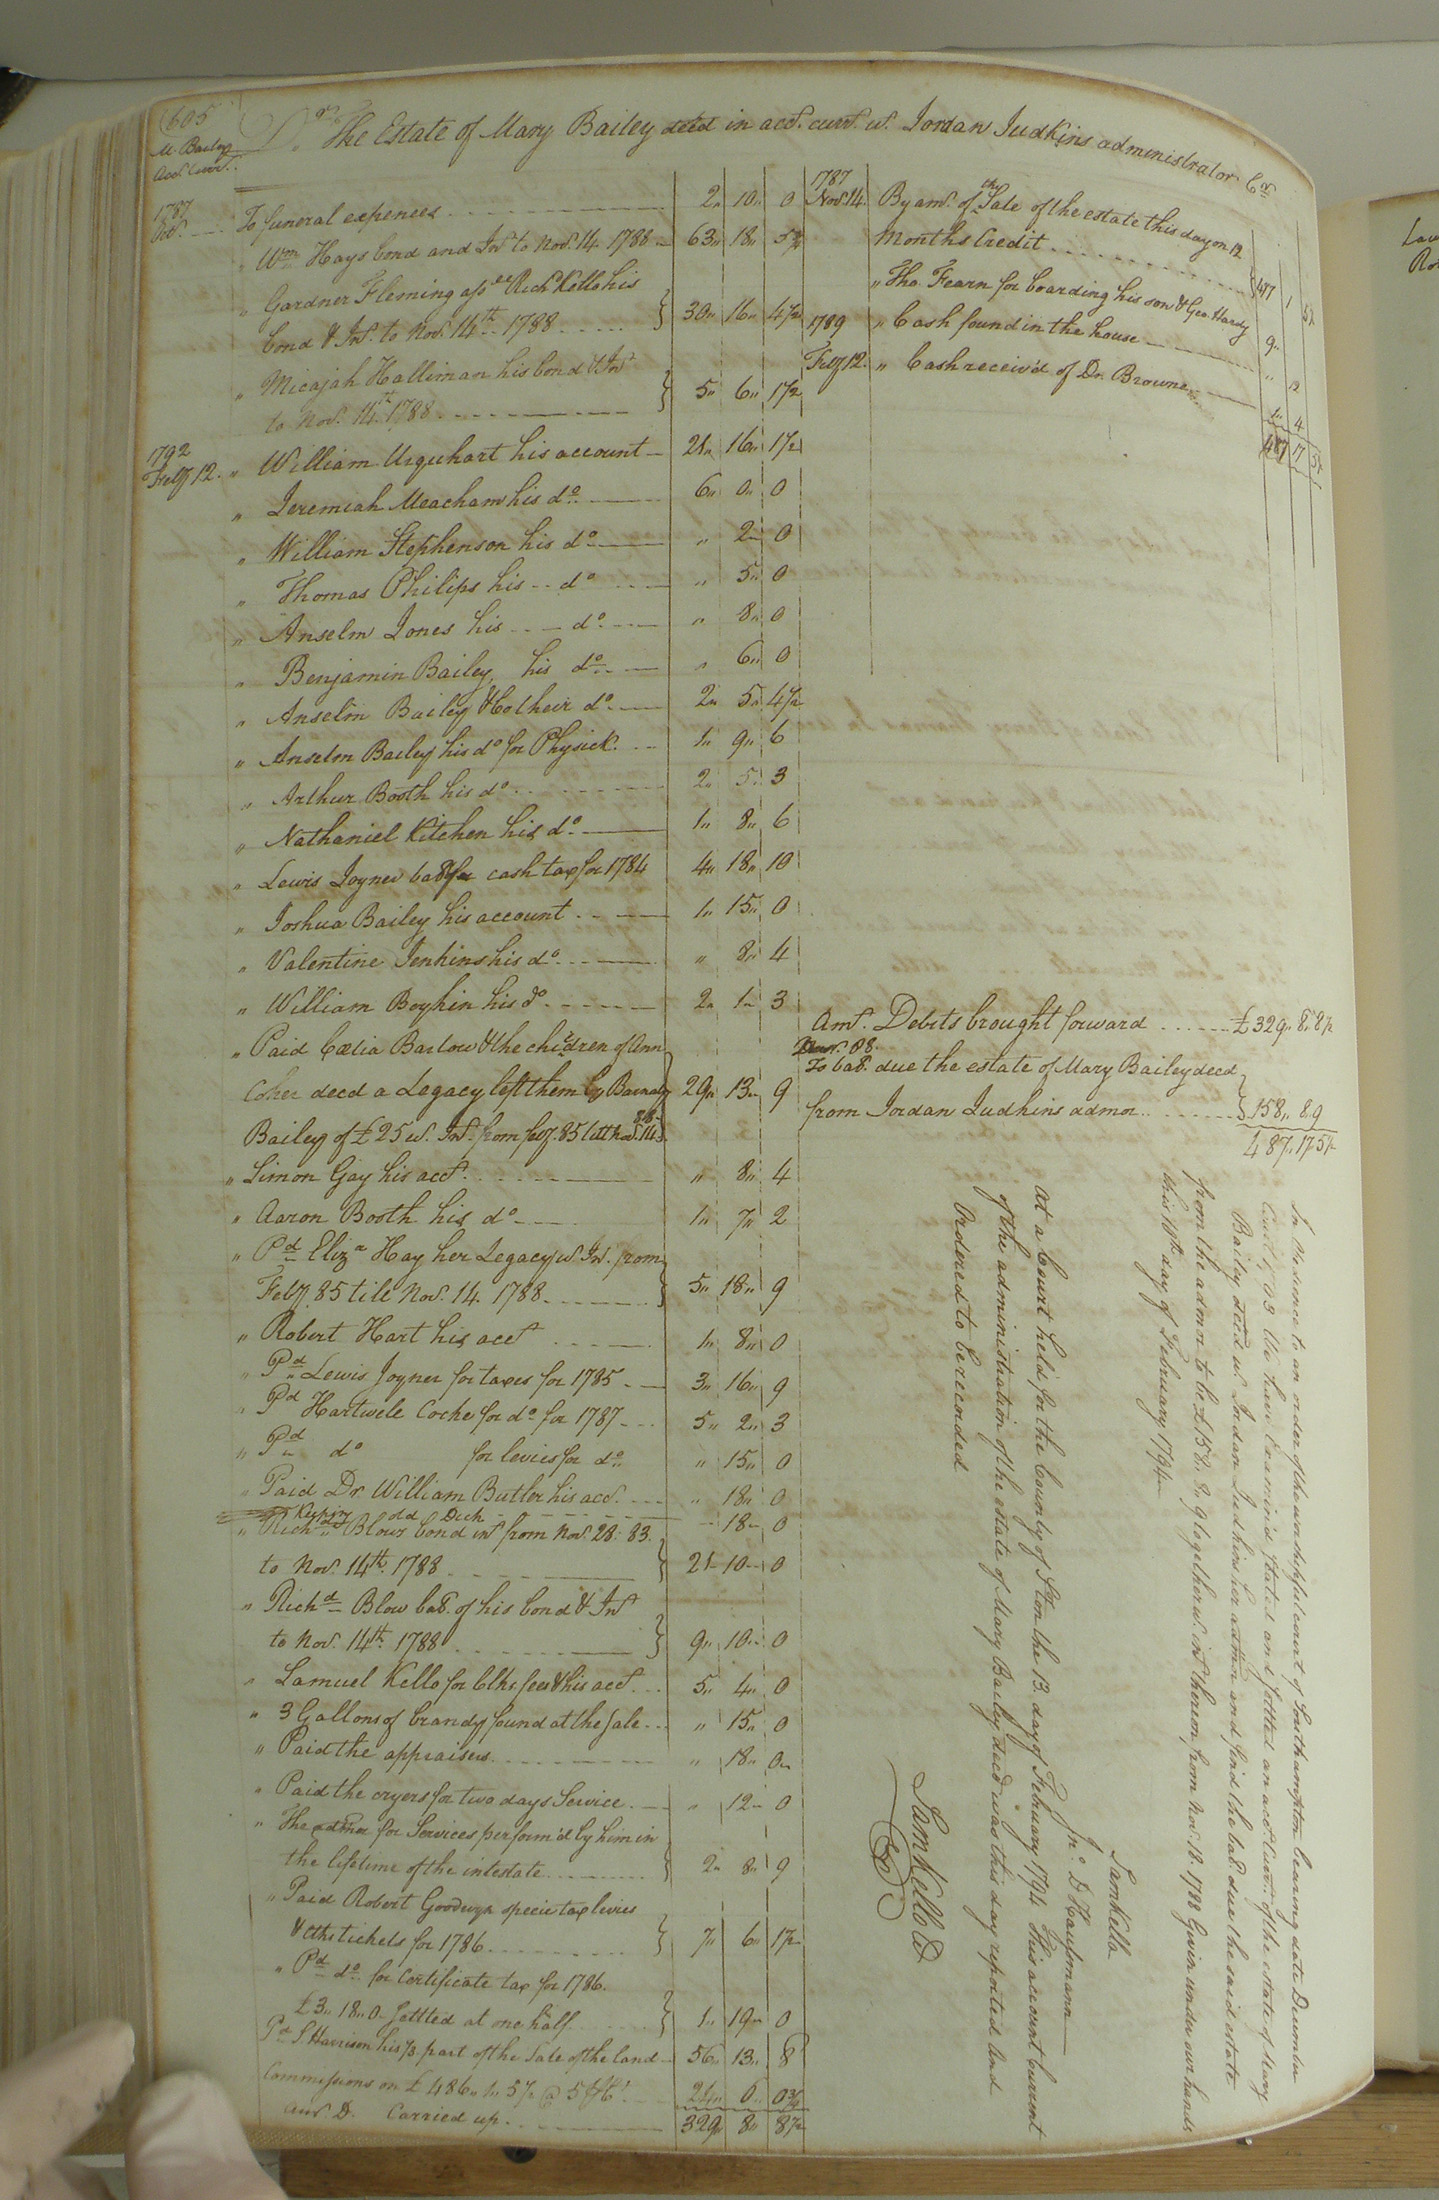 605
M. Bailey
Acct Curr.
Dr. The Estate of Mary Bailey decd in acct. currt. w. Jordan Judkins administrator Cr.
1787
Octr. To funeral expences 2 10 0
" Wm Hays bond and Int to Novr. 14. 1788 63 18 5½
" Gardner Fleming asse Richd Kello his
bond & Int. to Novr. 14th 1788 30 16 4½
" Micajah Halliman his bond & Int
to Novr. 14th 1788 5 6 1½
1792
Feby 12. " William Urquhart his account 21 16 1½
" Jeremiah Meacham his do 6 0 0
" William Stephenson his do " 2 0
" Thomas Philips his do " 5 0
" Anselm Jones his do " 8 0
" Benjamin Bailey his do " 6 0
" Anselm Bailey & Co their do 2 5 4½
" Anselm Bailey his do for Physick 1 9 6
" Arthur Booth his do 2 5 3
" Nathaniel Kitchen his do 1 8 6
" Lewis Joyner bal for cash tax for 1784 4 18 10
" Joshua Bailey his account 1 15 0
" Valentine Jenkins his do " 8 4
" William Boykin his do 2 1 3
" Paid Cælia Barlow & the children of Ann
Coker decd a Legacy left them by Barnaby 29 13 9
Bailey of £25 w. Int. from feby. 85 till Novr. 14 88
" Simon Gay his acct. " 8 4
" Aaron Booth his do 1 7 2
" Pd Eliza Hay her Legacy w. Int. from
Feby. 85 till Nov. 14. 1788 5 18 9
" Robert Hart his acct 1 8 0
" Pd Lewis Joyner for taxes for 1785 3 16 9
" Pd Hartwell Cocke for do for 1787 5 2 3
" Pd do for levies for do " 15 0
" Paid Dr. William Butler his acct. " 18 0
old Dick 18 0
" Richd Blows bond int from Nov. 28. 83.
to Novr. 14th 1788 21 10 0
" Richd Blow bal. of his bond & Int
to Nov. 14th. 1788 9 10 0
" Samuel Kello for Clks fees & his acct. 5 4 0
" 3 Gallons of brandy found at the Sale " 15 0
" Paid the appraisers " 18 0
" Paid the cryers for two days Service " 12 0
" The admor for Services perform'd by him in
the lifetime of the intestate 2 8 9
" Paid Robert Goodwyn specie tax levies
& Clks tickets for 1786 7 6 1½
" Pd do. for Certificate tax for 1786.
£3.. 18.. 0 Settled at one half 1 19 0
Pd S Harrison his ⅓ part of the Sale of the land 56 13 8
Commissions on £486.. 1.. 5½ @ 5 24 6 0¾
Carried up 329 8 8½
1787
Novr. 14. By amt. of the Sale of the estate this day on 12
Months Credit 477 1 5½
" Tho. Fearn for boarding his son & Geo. Hardy 9
1789 " Cash found in the house " 12
Feby 12. " Cash receiv'd of Dr. Browne 1 4
487 17 5½
Amt. Debits brought forward £329.. 8.. 8½
To bal. due the estate of Mary Bailey decd
from Jordan Judkins admor 158.. 8.. 9
487.. 17.. 5½
In Obedience to an order of the worshipful court of Southampton bearing date December
Court 1793 We have Examin'd stated and settled an acct curr. of the estate of Mary
Bailey decd w. Jordan Judkins her admor and find the bal. due the said estate
from the admor to be £158.. 8.. 9 together w. int thereon from Nov. 1788 Given under our hands
this 10th day of February 1794
Saml Kello
Jno. D Haussmann
At a Court held for the County of Soton the 13. day of February 1794 This account current
of the administration of the estate of Mary Bailey decd was this day reported and
Ordered to be recorded
Saml Kello Cl